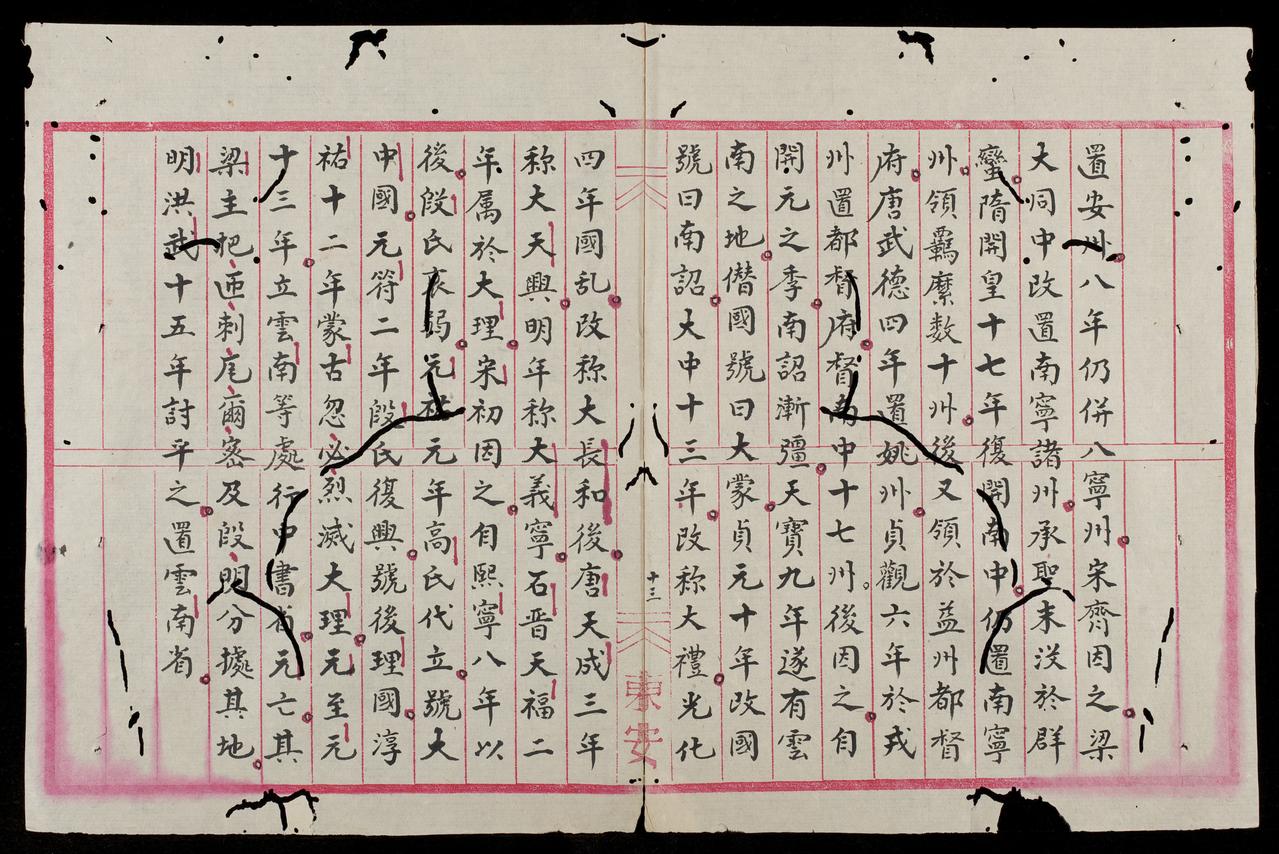 置安州八年仍併八寧州宋齊因之梁
大峒中改置南寧諸州承聖末没於群
蠻隋開皇十七年復開南中仍置南寧
州領羈縻数十州後又領於益州都督
府唐武德四年置姚州貞觀六年於戎
州置都督府督南中十七州後因之自
開元之季南詔漸彊天寶九年遂有雲
南之地僭國號曰大蒙貞元十年改國
號曰南詔大中十三年改称大禮光化
十三
東安
四年國乱改称大長和後唐天成三年
称大天興明年称大義寧石晋天福二
年属於大理宋初因之自熙寧八年以
後段氏衰弱元祐元年高氏代立號大
中國元符二年段氏復興號後理國淳
祐十二年蒙古忽必烈滅大理元至元
十三年立雲南等處行中書省元亡其
梁主把匝刺瓦爾密及段明分據其地
明洪武十五年討平之置雲南省